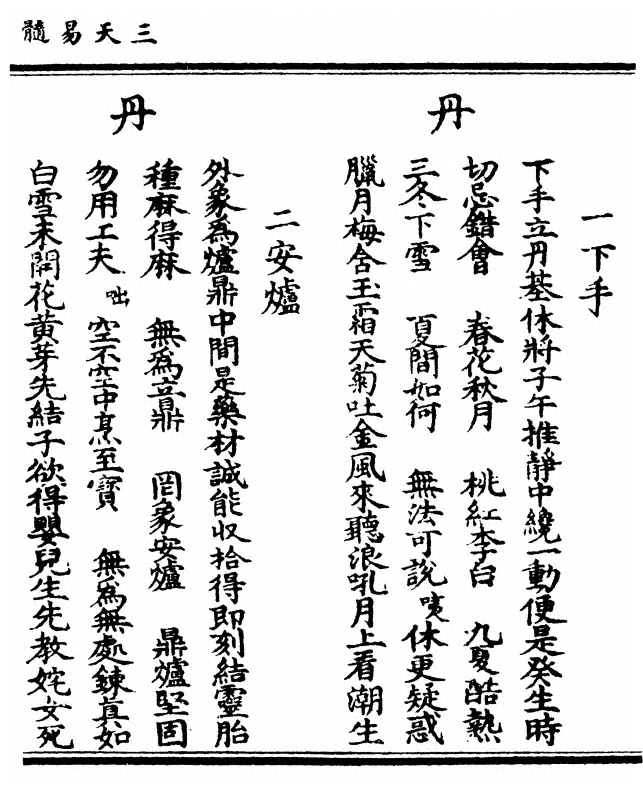 三天易髓
一下手
丹
下手立丹基休將子午推靜中纔一動便是癸生時
切忌錯會 春花秋月 桃紅李白 九夏酷熱
三冬下雪 夏間如何 無法可說咦休更疑惑
臘月梅含玉霜天菊吐金風來聽浪吼月上看潮生
二安爐
丹
外象為爐鼎中間是藥材誠能收拾得即刻結靈胎
種麻得麻 無為立鼎 罔象安爐 鼎爐堅固
勿用工夫咄空不空中烹至寶 無為無處鍊真如
白雪未開花黃芽先結子欲得嬰兒生先教姹女死